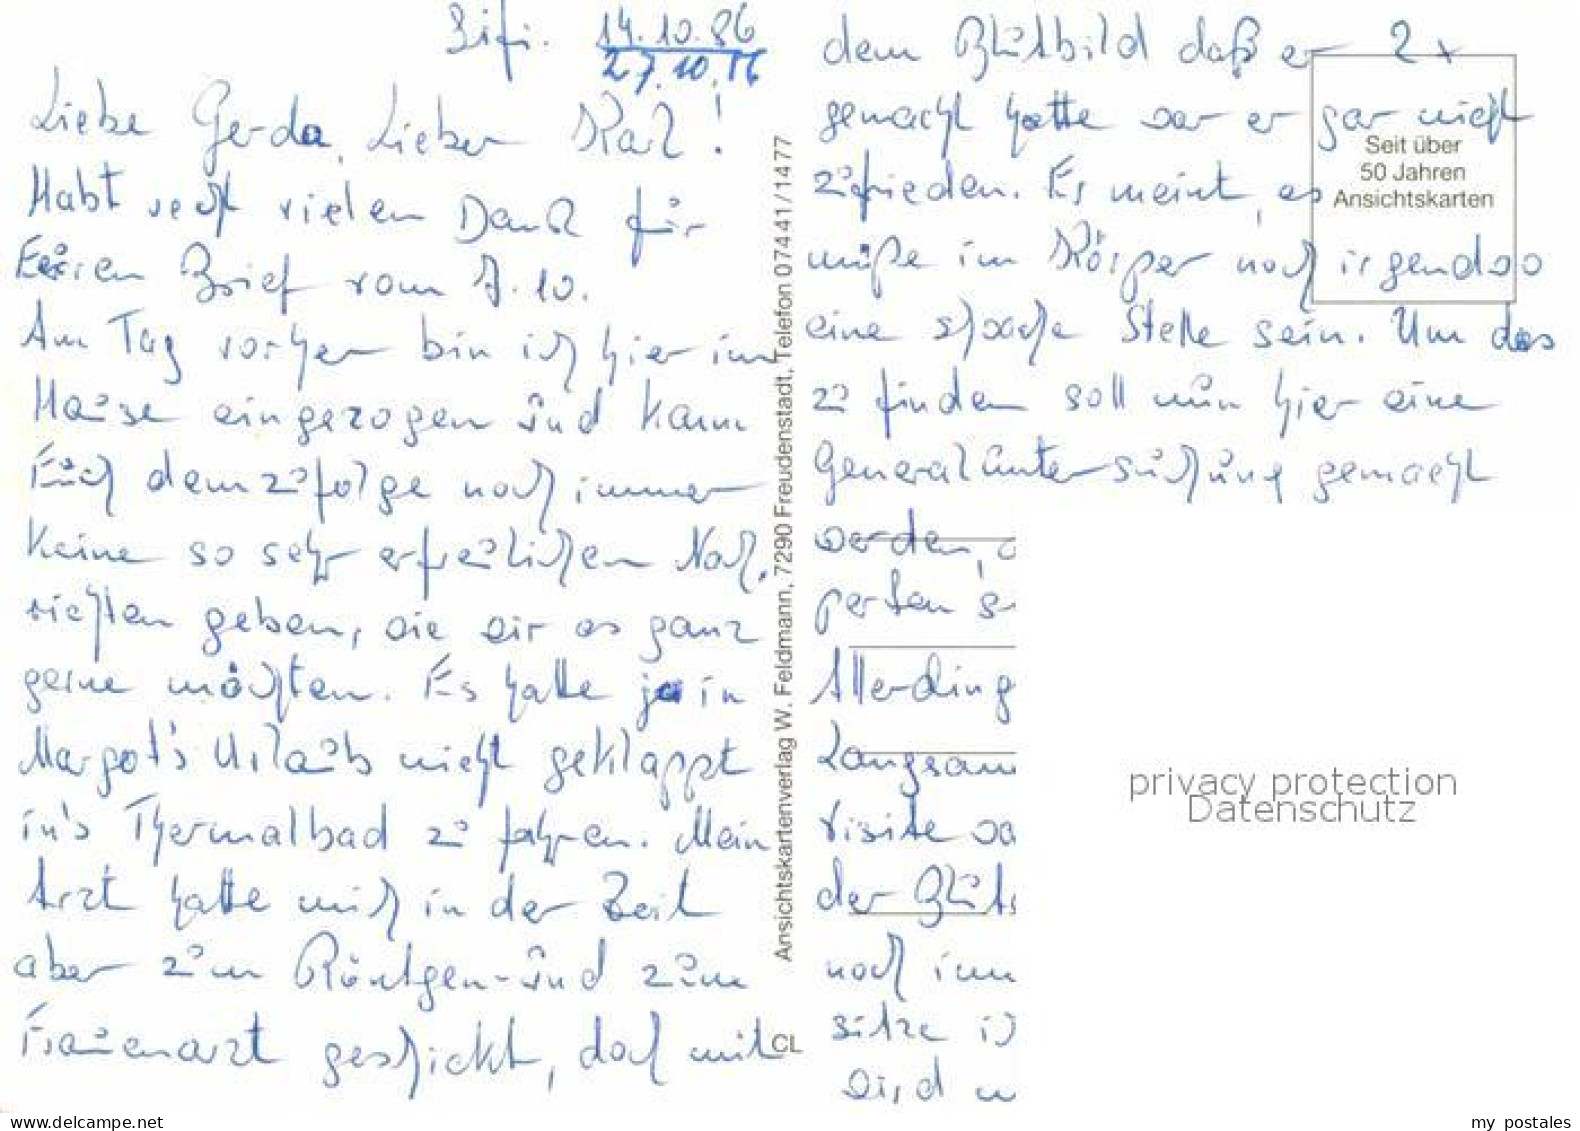 14.10.86
27.10.86
Liebe Gerda, Lieber Karl!
Habt recht vielen Dank für
Eueren Brief vom 7.10.
Am Tag vorher bin ich hier im
Hause eingezogen und kann
Euch demzufolge noch immer
keine so sehr erfreulichen Nach,
richten geben, wie wir es ganz
gerne möchten. Es hatte ja in
Margot's Urlaub nicht geklappt
in's Thermalbad zu fahren. Mein
Arzt hatte mich in der Zeit
aber zum Röntgen-und zum
Frauenarzt geschickt, doch mit
Ansichtskartenverlag W. Feldmann, 7290 Freudenstadt, Telefon 07441/1477
CL
dem Blutbild daß er 2 x
gemacht hatte war er gar nicht
zufrieden. Er meint, es
müße im Körper noch irgendwo
eine schwache Stelle sein. Um das
zu finden soll nun hier eine
Generaluntersuchung gemacht
werden,
Allerding
Langsam
visite wa
der Bluts
noch imm
sitze ich
wird
Seit über
50 Jahren
Ansichtskarten
privacy protection
Datenschutz
www.delcampe.net
my postales